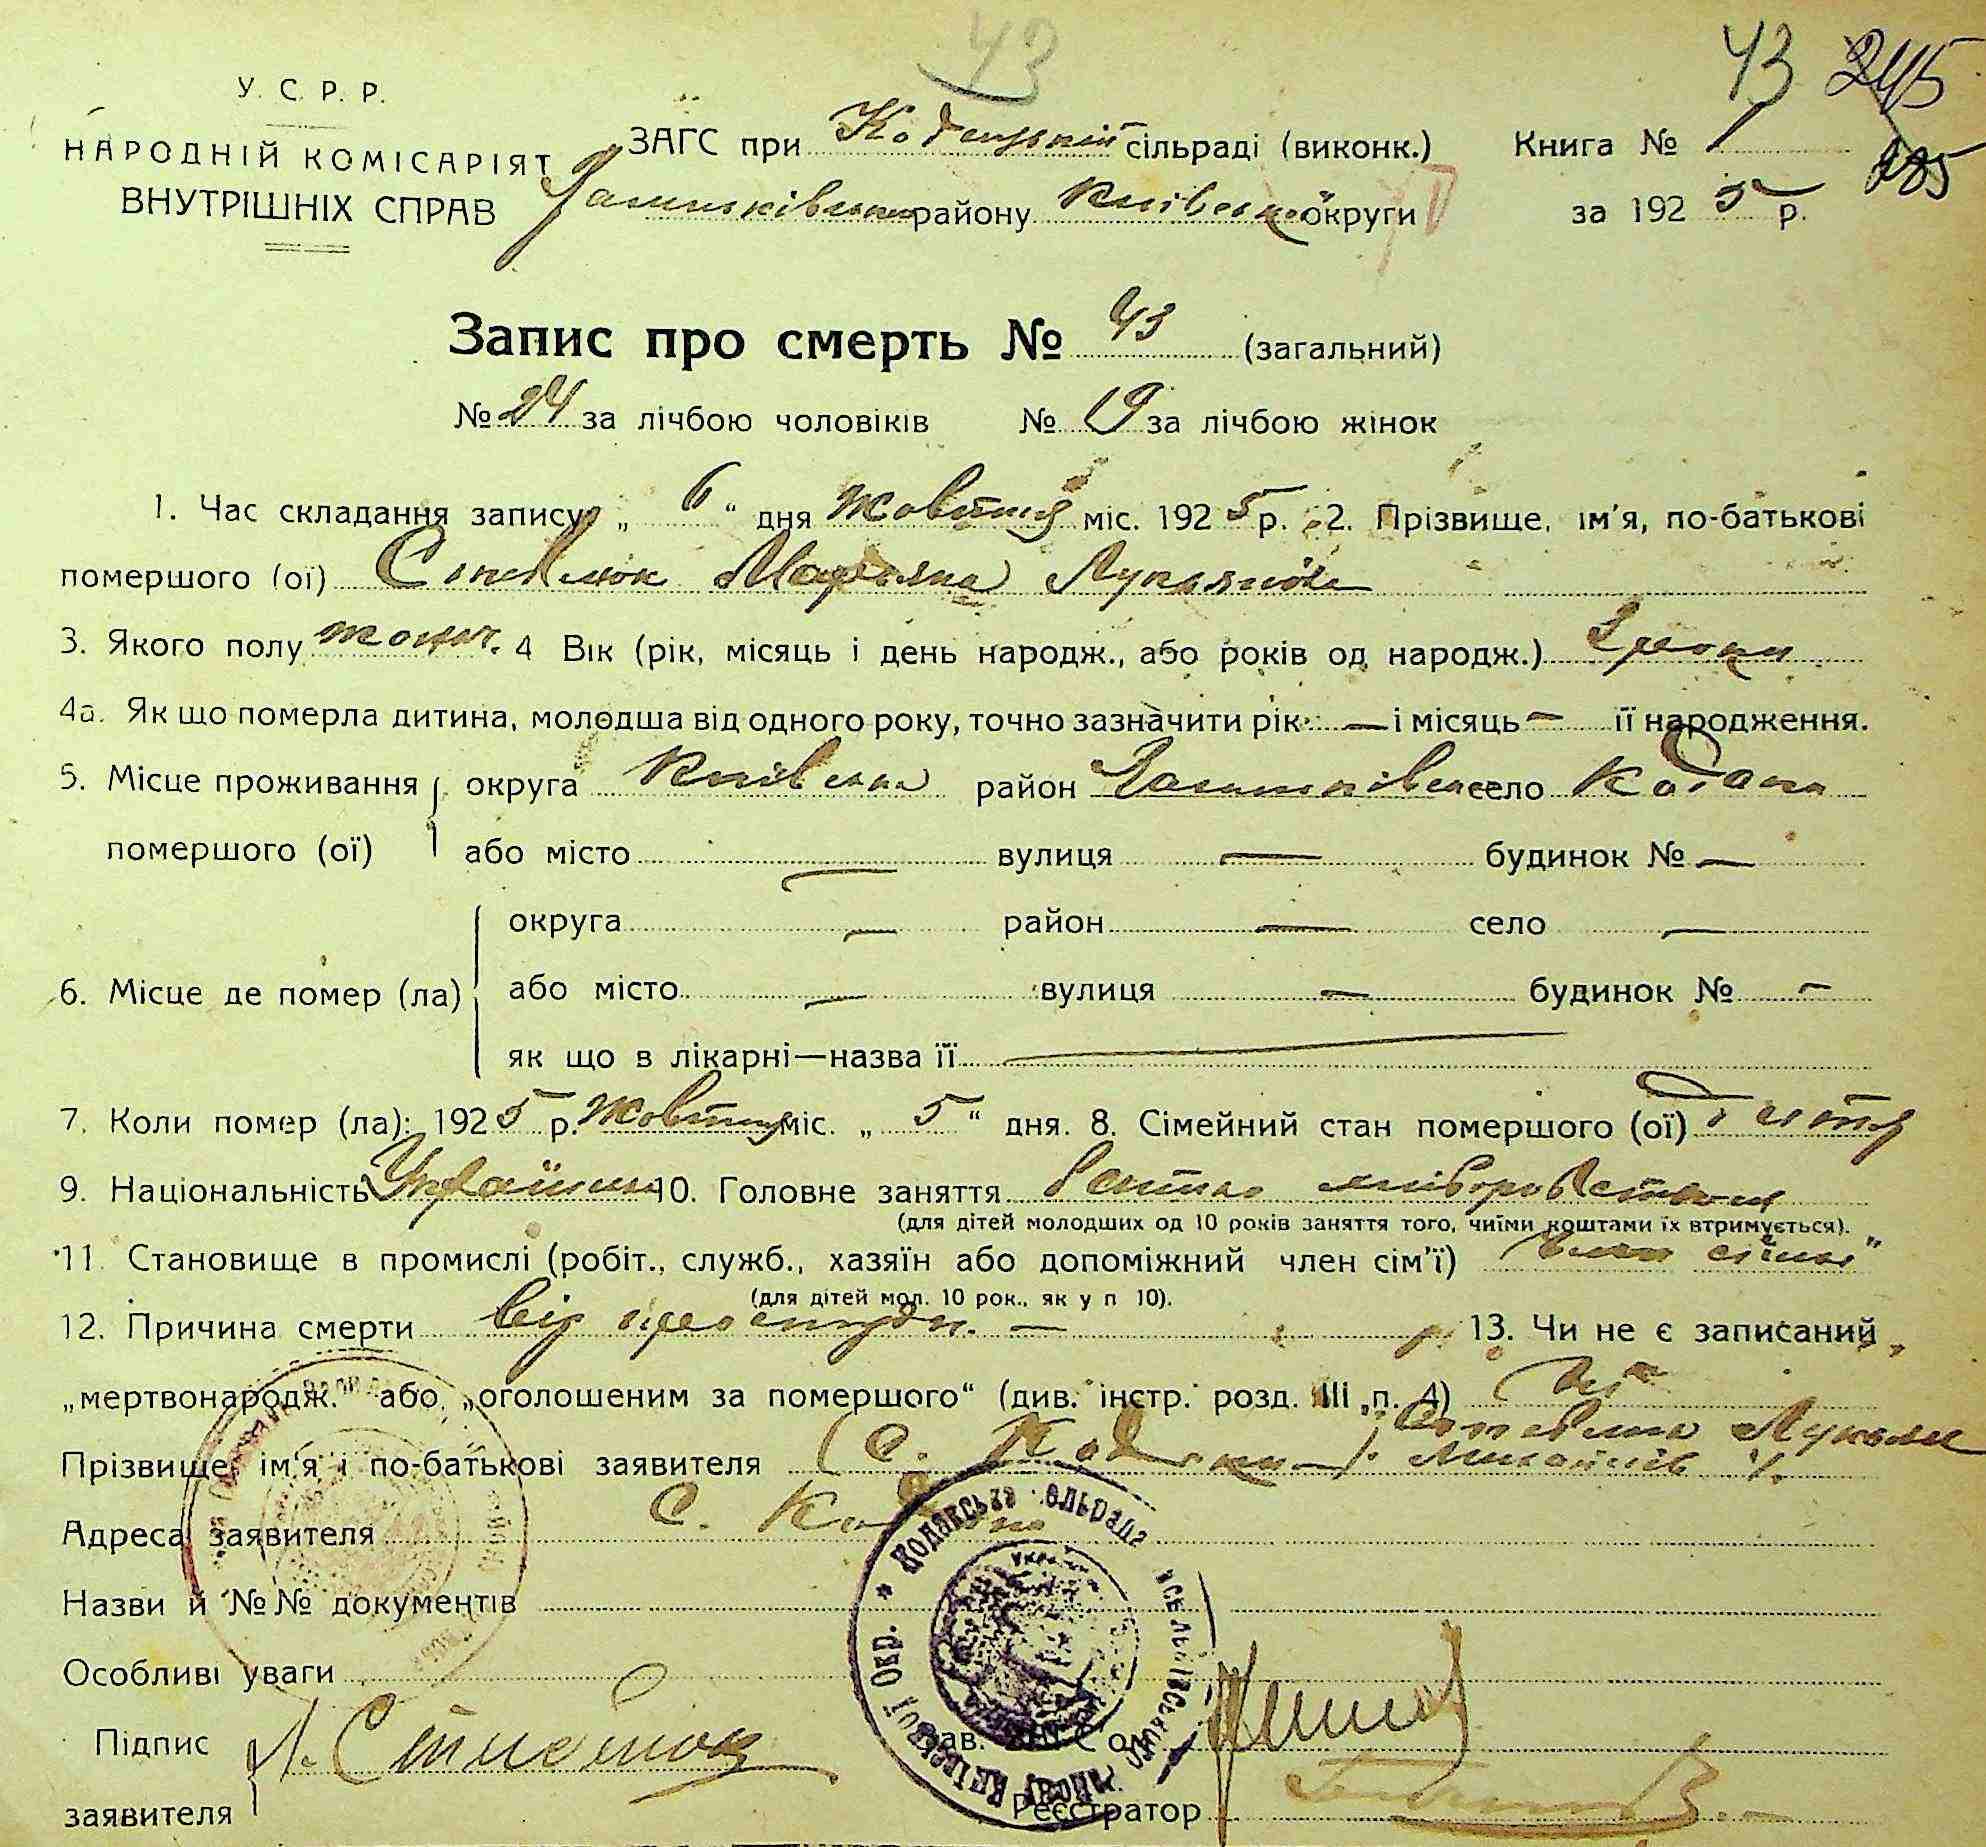 43
43 245
285
У. С. Р. Р.
НАРОДНІЙ КОМІСАРІЯТ
ВНУТРІШНІХ СПРАВ
ЗАГС при Кодацькій сільраді (виконк.)
району Київської округи
Книга № 1
за 1925 р.
Запис про смерть № 43 (загальний)
№ 24 за лічбою чоловіків № 19 за лічбою жінок
1. Час складання запису „ 6 “ дня Жовтня міс. 1925 р. 2. Прізвище, ім'я, по-батькові
помершого (ої) Мар'яна Лукянівна
3. Якого полу жоноч. 4 Вік (рік, місяць і день народж., або років од народж.) 2 роки
4а. Як що померла дитина, молодша від одного року, точно зазначити рік — і місяць — її народження.
5. Місце проживання помершого (ої) округа Київська район село Кодаки
або місто — вулиця — будинок № —
6. Місце де помер (ла) округа — район — село —
або місто — вулиця — будинок № —
як що в лікарні—назва її —
7. Коли помер (ла): 1925 р. Жовтня міс. „ 5 “ дня. 8. Сімейний стан помершого (ої) дитя
9. Національність Українка 10. Головне заняття батько хліборобством
(для дітей молодших од 10 років заняття того, чиїми коштами їх втримується).
11. Становище в промислі (робіт., служб., хазяїн або допоміжний член сім'ї) член сім'ї
(для дітей мол. 10 рок., як у п 10).
12. Причина смерти від простуди. — 13. Чи не є записаний
„мертвонародж.“ або „оголошеним за помершого“ (див. інстр. розд. III п. 4) ні
Прізвище, ім'я і по-батькові заявителя (с. Кодаки) Лукян
Михайлів
Адреса заявителя с. Кодаки
Назви й №№ документів
Особливі уваги
Підпис
заявителя
Зав. ЗАГС'ом
Реєстратор